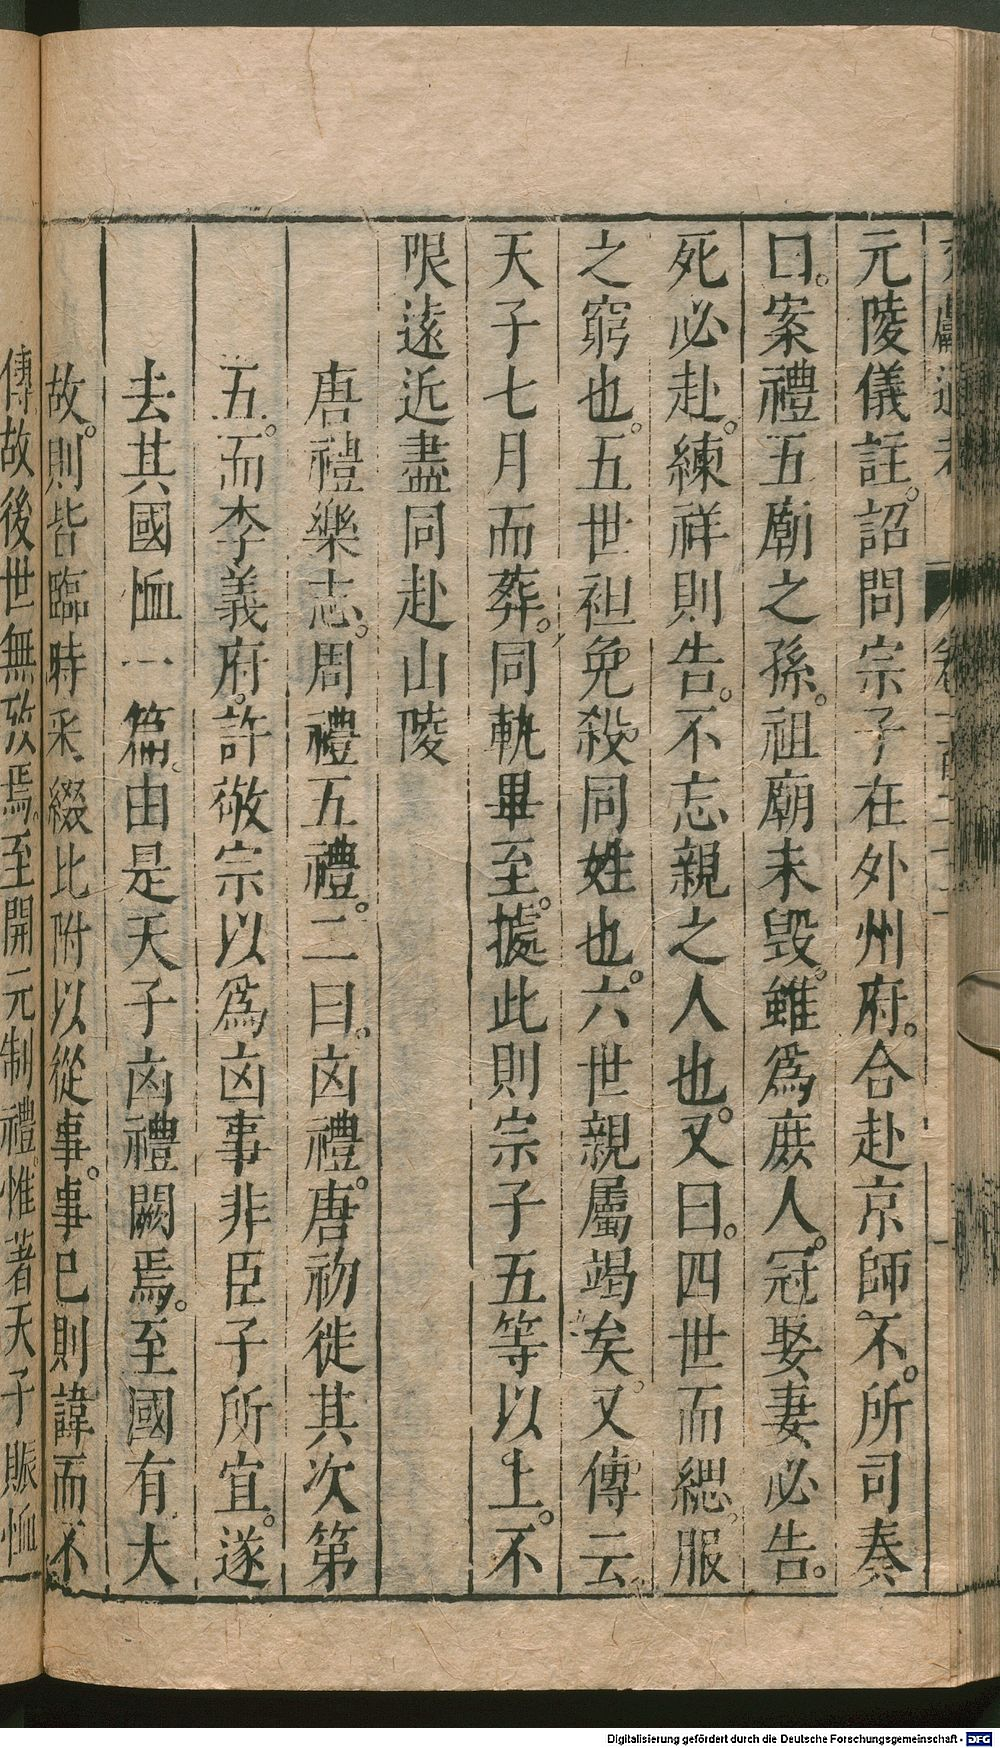 元陵儀註。詔問宗子在外州府。合赴京師不。所司奏
曰。案禮五廟之孫。祖廟未毀。雖爲庶人。冠娶妻必告。
死必赴。練祥則告。不忘親之人也。又曰。四世而緦。服
之窮也。五世袒免殺同姓也。六世親屬竭矣。又傳云。
天子七月而葬。同軌畢至。據此則宗子五等以上。不
限遠近盡同赴山陵
唐禮樂志。周禮五禮。二曰。凶禮。唐初徙其次第
五。而李義府。許敬宗以爲凶事非臣子所宜。遂
去其國恤一篇。由是天子凶禮闕焉。至國有大
故。則皆臨時采綴比附以從事。事已則諱而不
傳故後世無攷焉。至開元制禮。惟著天子賑恤
Digitalisierung gefördert durch die Deutsche Forschungsgemeinschaft - DFG